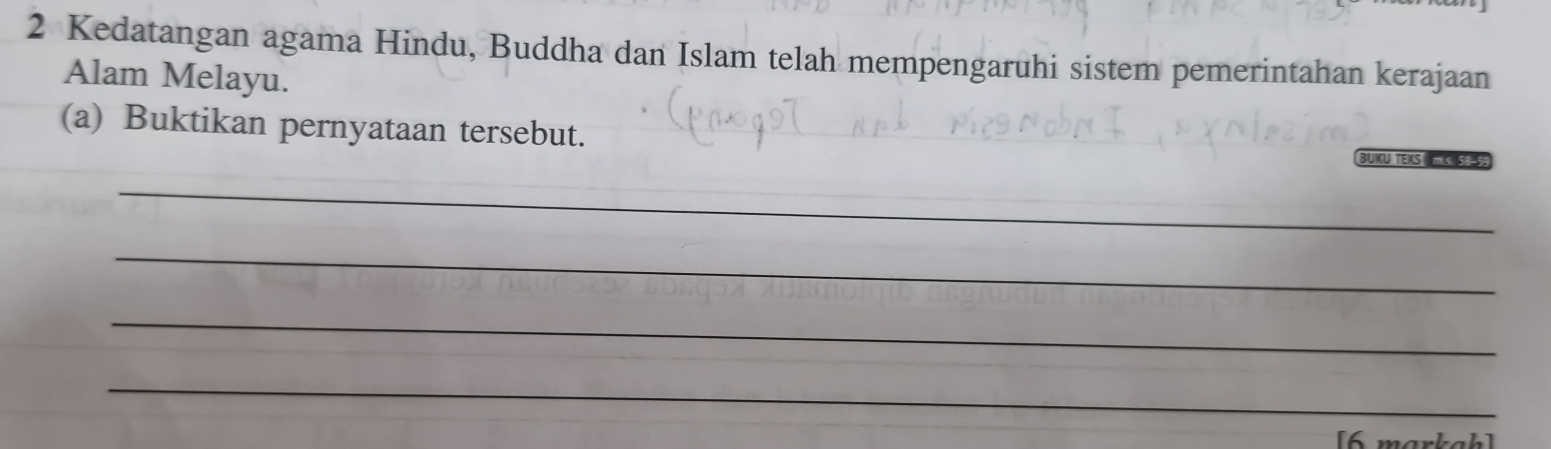 2 Kedatangan agama Hindu, Buddha dan Islam telah mempengaruhi sistem pemerintahan kerajaan
Alam Melayu.
(a) Buktikan pernyataan tersebut.
BUKU TEKS m.s. 58-59
[6 markah]